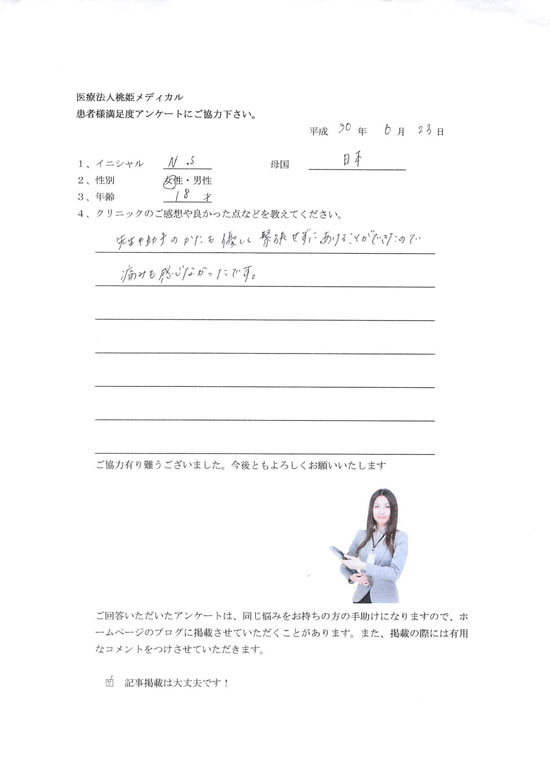 医療法人桃姫メディカル
患者様満足度アンケートにご協力下さい。
平成 30 年 6 月 23 日
1、イニシャル N.S 母国 日本
2、性別 女性・男性
3、年齢 18 才
4、クリニックのご感想や良かった点などを教えてください。
先生や助手のかたも優しく緊張せずにあけることができたので
痛みも感じなかったです。
ご協力有り難うございました。今後ともよろしくお願いいたします
ご回答いただいたアンケートは、同じ悩みをお持ちの方の手助けになりますので、ホ
ームページのブログに掲載させていただくことがあります。また、掲載の際には有用
なコメントをつけさせていただきます。
☑ 記事掲載は大丈夫です！